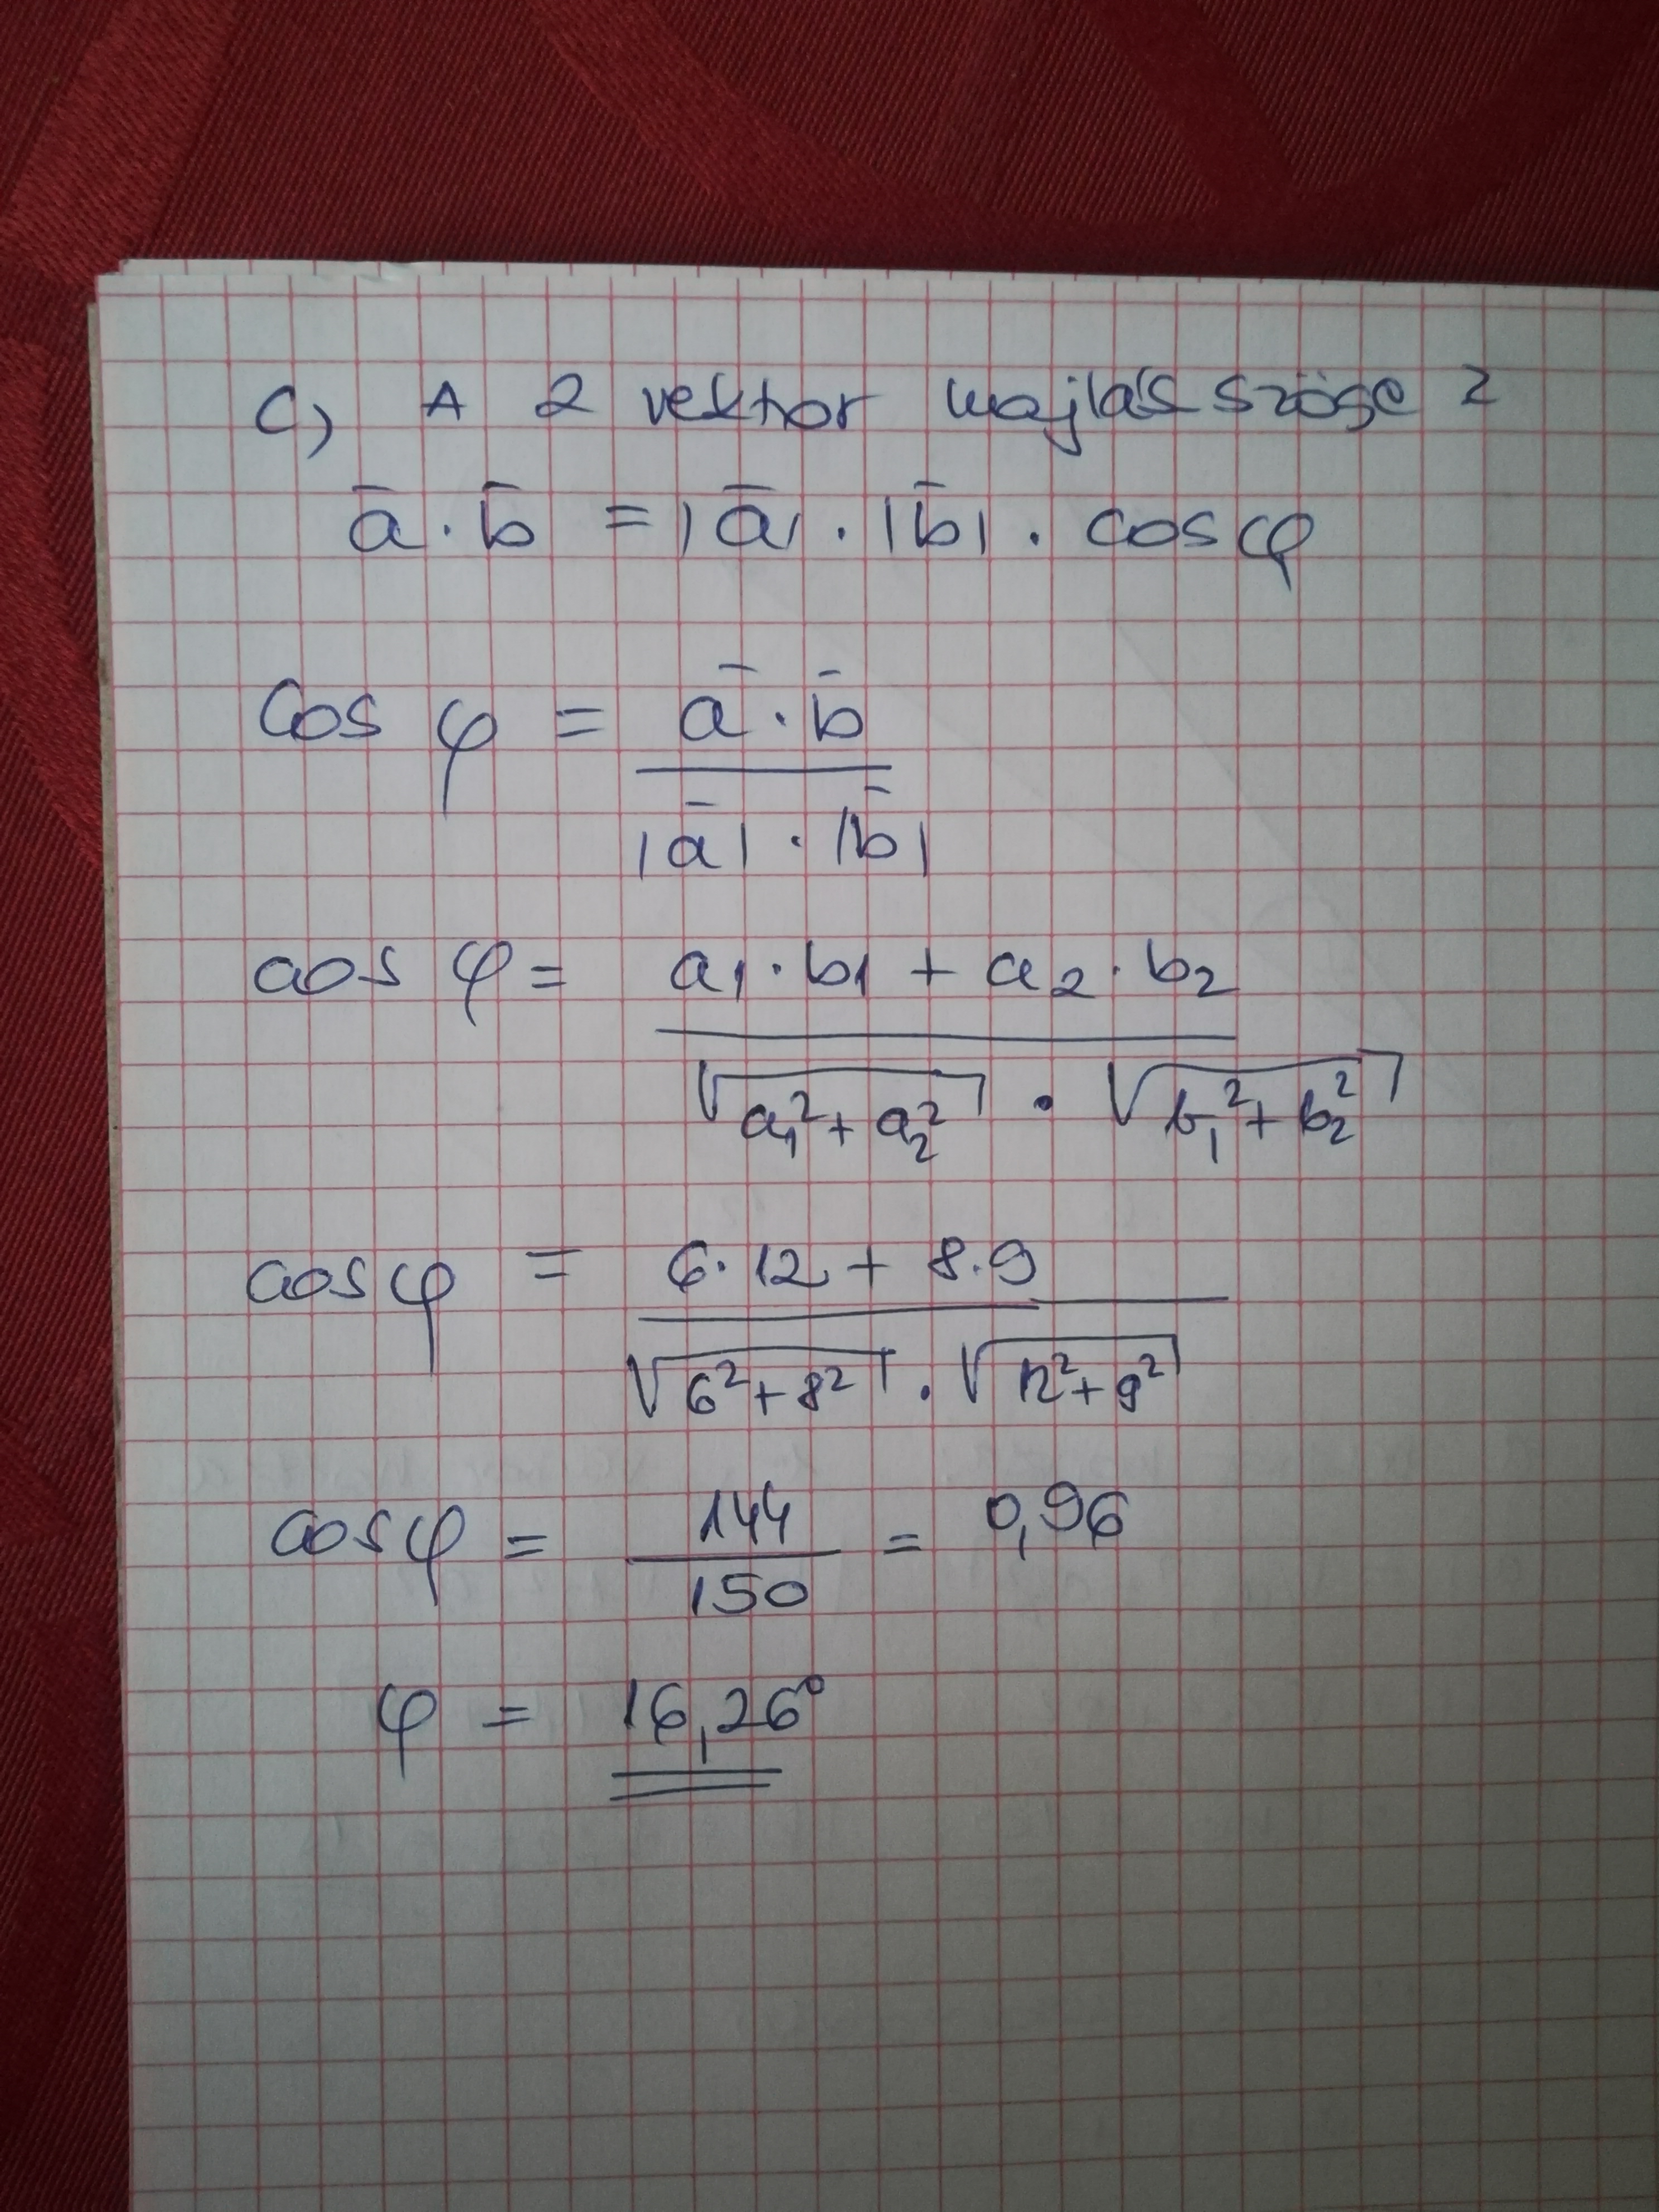 C, A 2 vektor hajlásszöge ?
a̅ · b̅ = |a̅| · |b̅| · cos φ
Cos φ = a̅ · b̅
|a̅| · |b̅|
cos φ = a₁ · b₁ + a₂ · b₂
√(a₁² + a₂²) · √(b₁² + b₂²)
cos φ = 6 · 12 + 8 · 9
√(6² + 8²) · √(12² + 9²)
cos φ = 144 = 0,96
150
φ = 16,26°